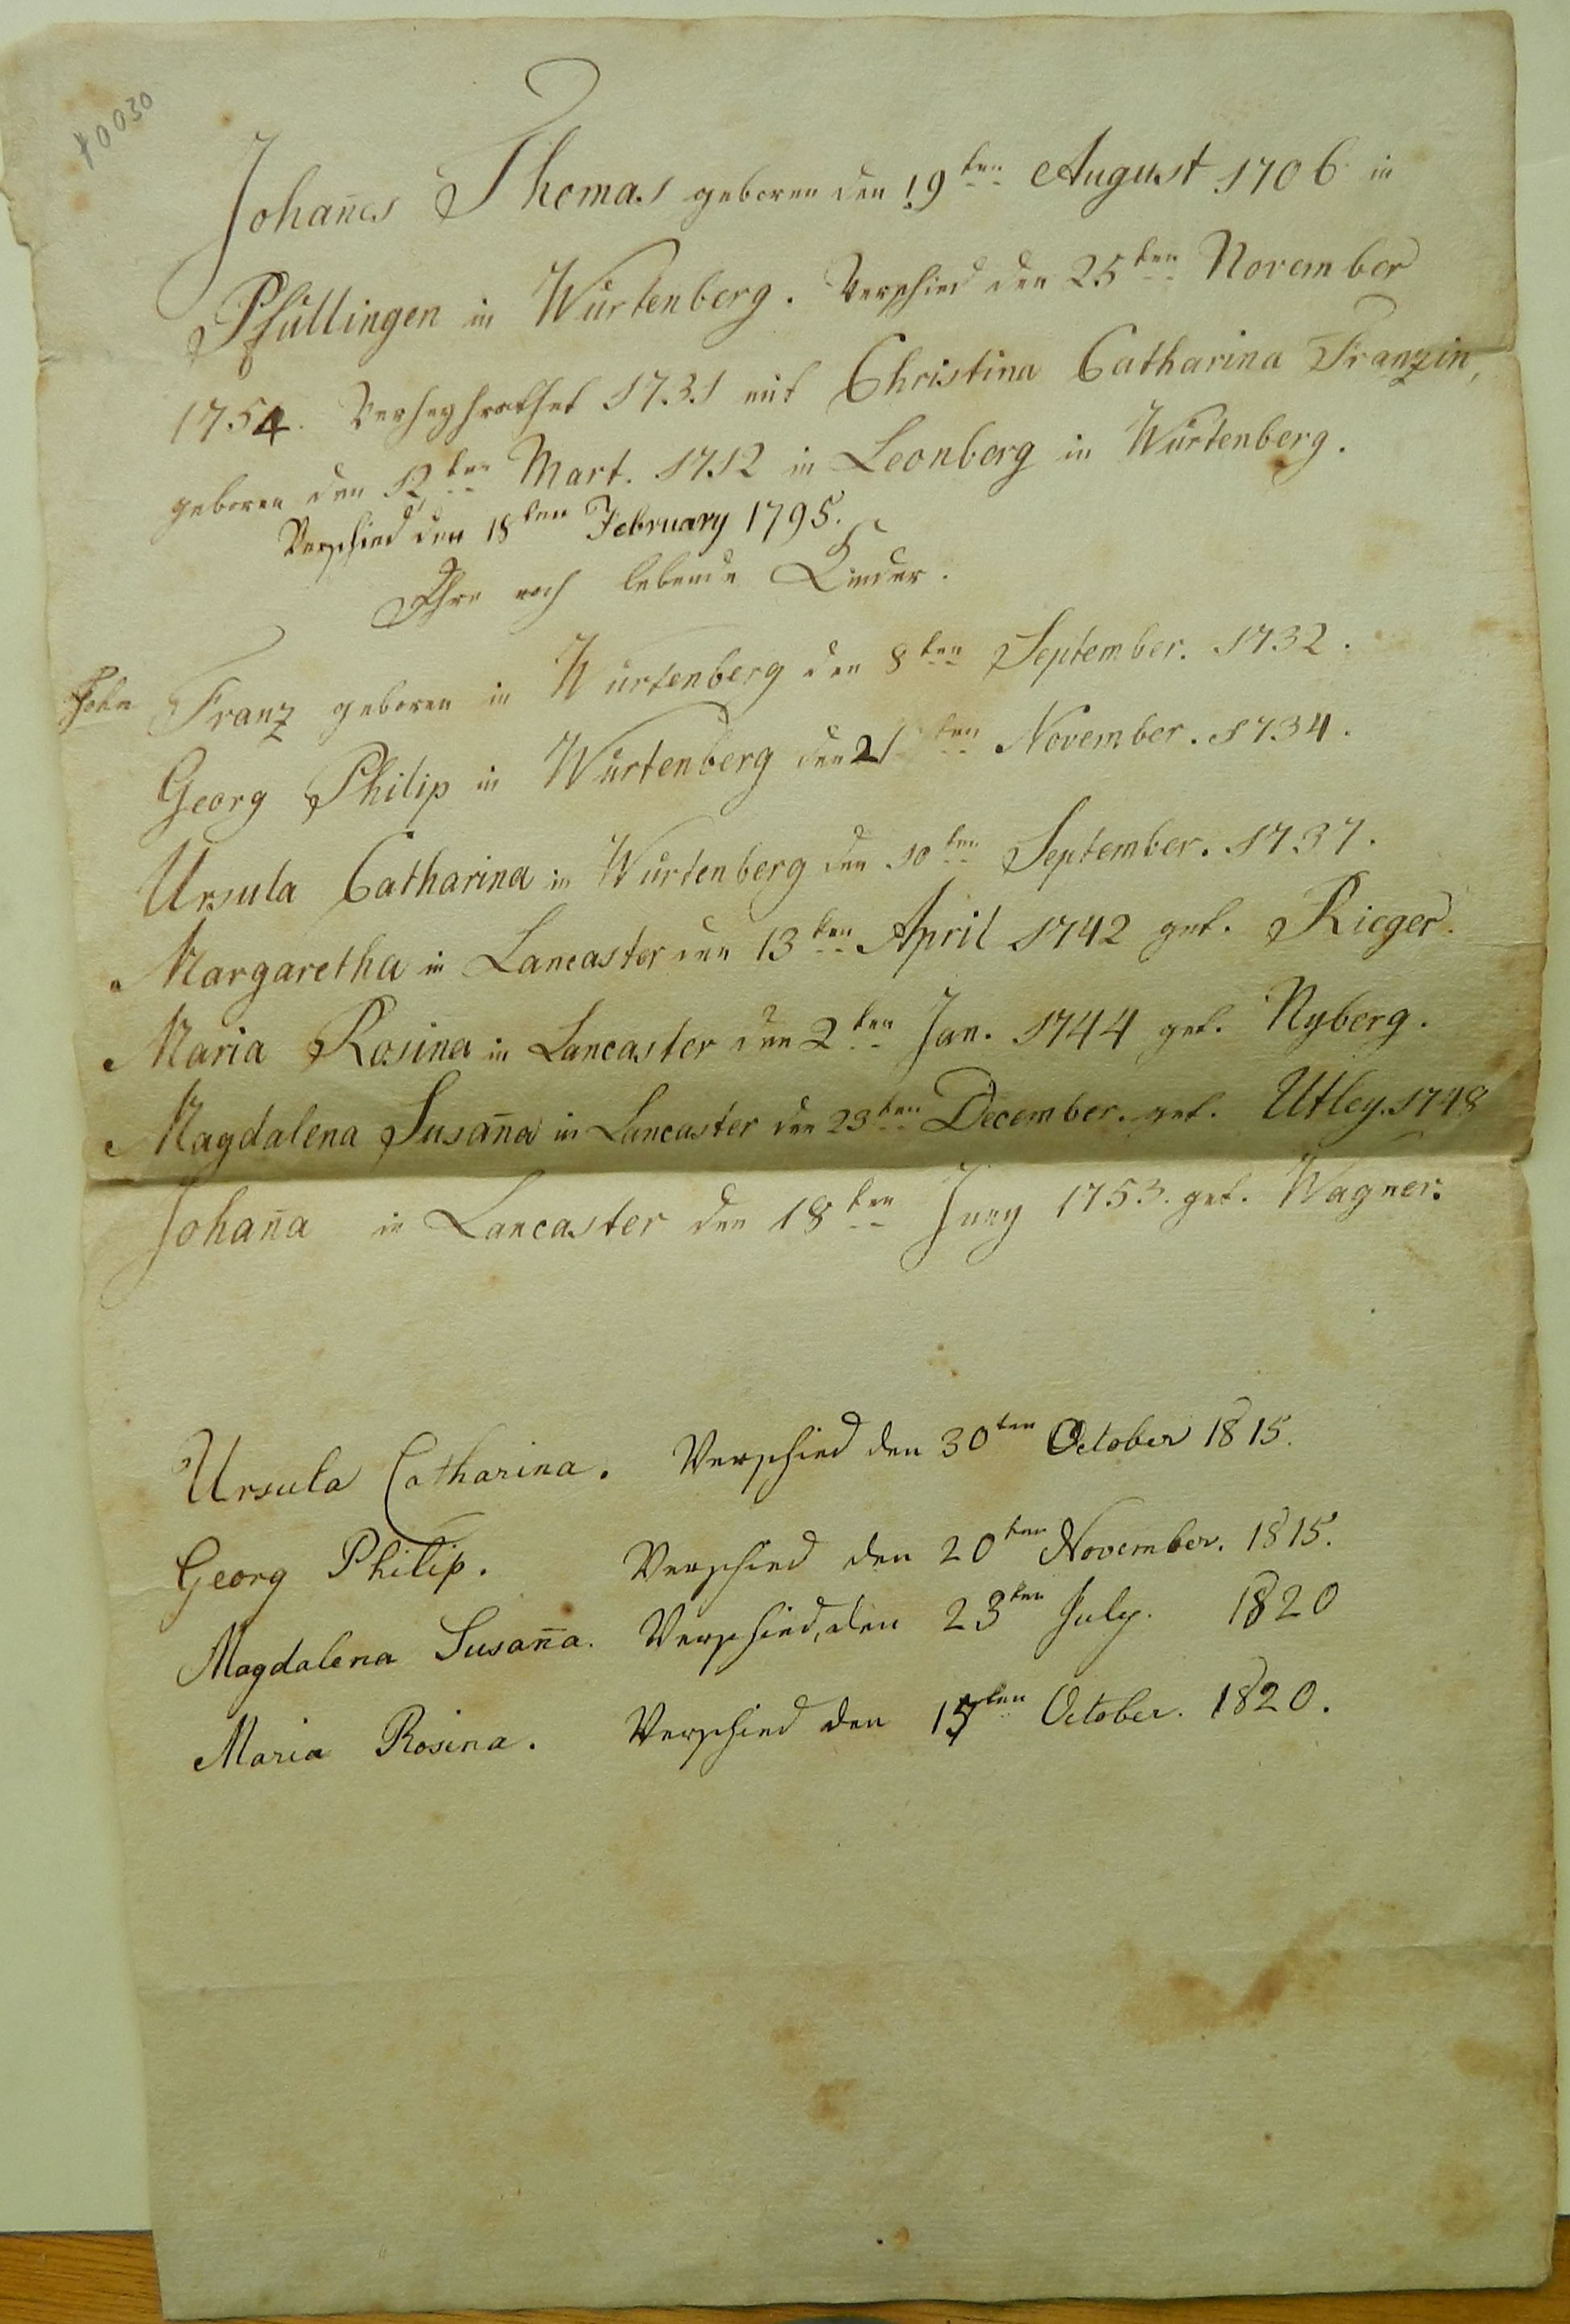 40030
Johan̄es Thomas geboren den 19ten August 1706 in
Pfullingen in Würtenberg. Verschied den 25ten November
1754. Verheyhrathet 1731 mit Christina Catharina Franzin,
geboren den 12ten Mart. 1712 in Leonberg in Würtenberg.
Verschied den 18ten February 1795.
Ihre noch lebende Kinder.
John Franz geboren in Würtenberg den 8ten September. 1732.
Georg Philip in Würtenberg den 21ten November. 1734.
Ursula Catharina in Würtenberg den 10ten September. 1737.
Margaretha in Lancaster den 13ten April 1742 get. Rieger.
Maria Rosina in Lancaster den 2ten Jan. 1744 get. Nyberg.
Magdalena Susan̄a in Lancaster den 23ten December. get. Utley. 1748
Johan̄a in Lancaster den 18ten Juny 1753. get. Wagner.
Ursula Catharina. Verschied den 30ten October 1815.
Georg Philip. Verschied den 20ten November. 1815.
Magdalena Susan̄a. Verschied, den 23ten July. 1820
Maria Rosina. Verschied den October. 1820.